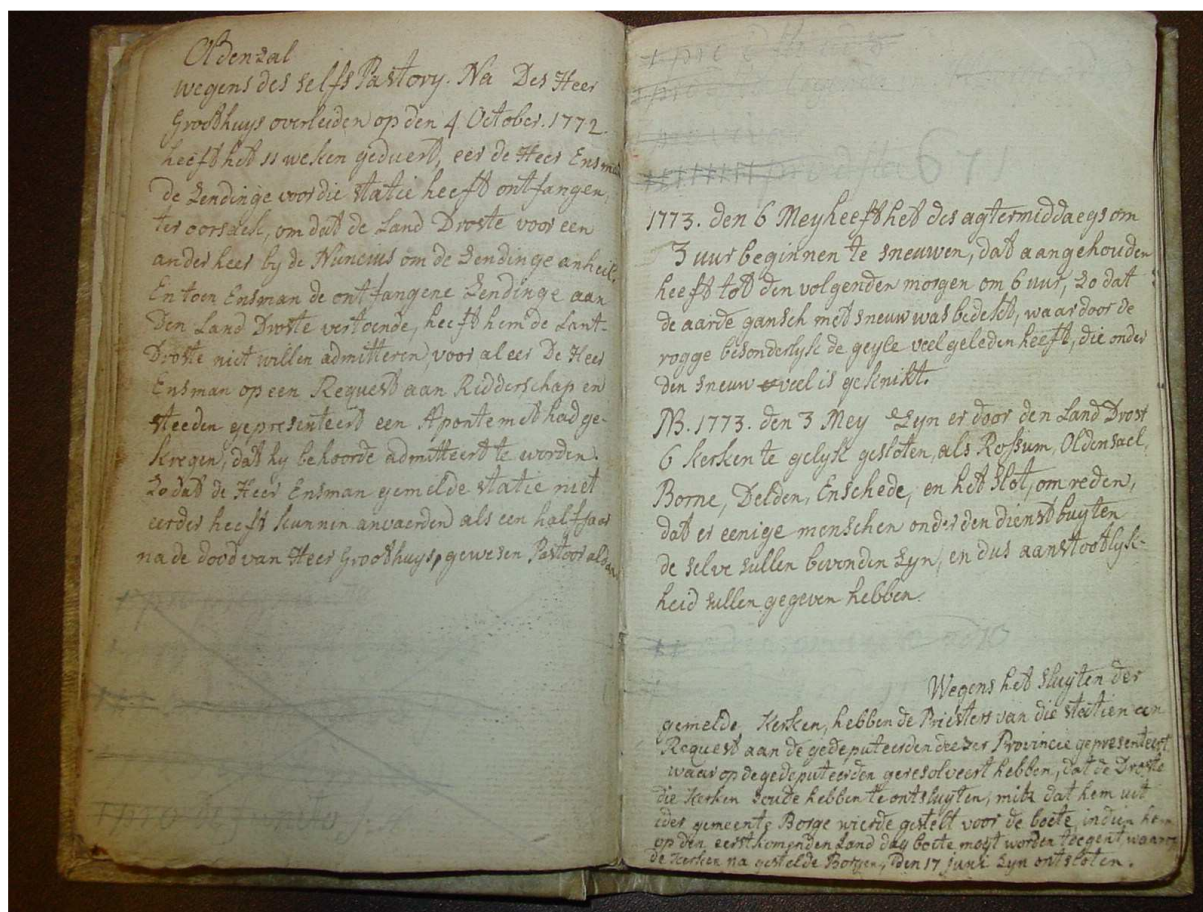 Oldenzal
wegens des selfs Pastory. Na Des Heer
Groothuys overleiden op den 4 October. 1772
heeft het 11 weken geduert, eer de Heer Ensman
de Zendinge voor die statie heeft ontfangen,
ter oorsaek, om dat de Land Droste voor een
ander heer by de Nuncius om de Zendinge anheilt.
En toen Ensman de ontfangene Zendinge aan
Den Land Droste vertoende, heeft hem de Lant-
Droste niet willen admitteren, voor al eer De Heer
Ensman op een Request aan Ridderschap en
steeden gepresenteert een Apontement had ge-
kregen, dat hy behoorde admitteert te worden.
Zo dat de Heer Ensman gemelde statie niet
eerder heeft kunnen anvaerden als een half jaar
na de dood van Heer Groothuys, gewesen Pastoor aldaar
6
1773. den 6 Mey heeft het des agtermiddaegs om
3 uur beginnen te sneuwen, dat aangehouden
heeft tot den volgenden morgen om 6 uur, Zo dat
de aarde gansch met sneuw was bedekt, waardoor de
rogge besonderlyk de geyle veel geleden heeft, die onder
den sneuw veel is geknikt.
NB. 1773. den 3 Mey Zyn er door den Land Drost
6 kerken te gelyk gesloten, als Rossum, Oldensael,
Borne, Delden, Enschede, en het Slot, om reden,
dat er eenige menschen onder den dienst buyten
de selve sullen bevonden Zyn, en dus aanstootlyk-
heid sullen gegeven hebben.
Wegens het sluyten der
gemelde Kerken, hebben de Priesters van die statien een
Request aan de gedeputeerden deeser Provincie gepresenteert
waar op de gedeputeerden geresolveert hebben, dat de Droste
die Kerken soude hebben te ontsluyten, mits dat hem uit
ider gemeente Borge wierde gestelt voor de boete, indien hem
op den eerstkomenden Land dag boete mogt worden toegent, waarop
de Kerken na gestelde Borgen, den 17 juni Zyn ontsloten.